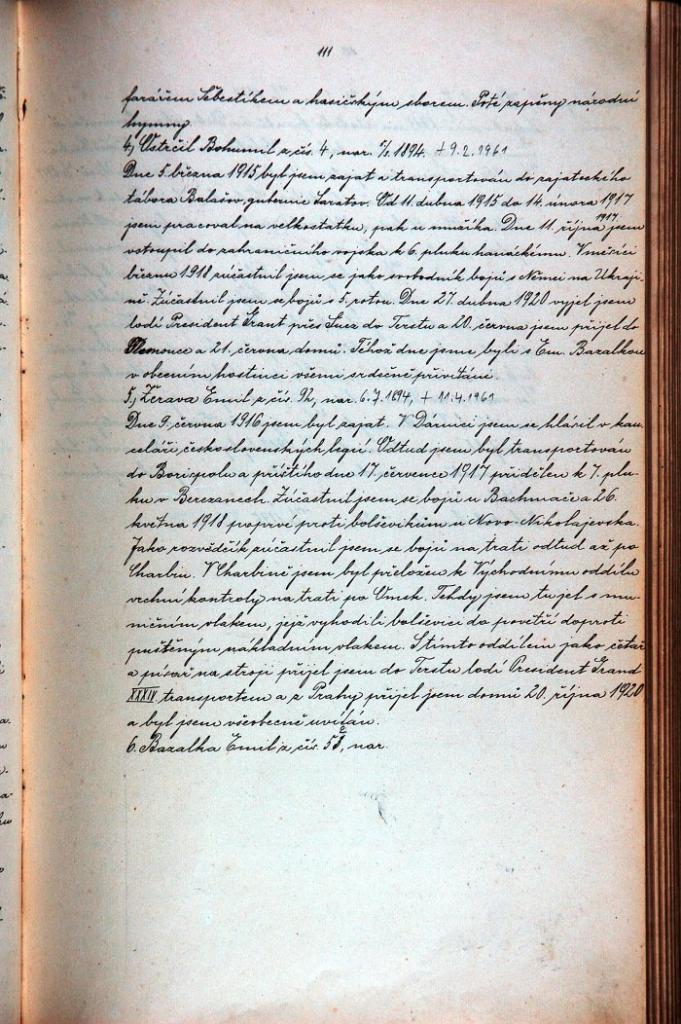 111
farářem Šebestíkem a hasičským sborem. Poté zapěny národní
hymny.
4, Ostrčil Bohumil z čís. 4, nar. 1894. + 9.2.1961
Dne 5. března 1915 byl jsem zajat a transportován do zajateckého
tábora Balašov, gubernie Saratov. Od 11. dubna 1915 do 14. února 1917
jsem pracoval na velkostatku, pak u mužika. Dne 11. října 1917 jsem
vstoupil do zahraničního vojska k 6. pluku hanáckému. V měsíci
březnu 1918 zúčastnil jsem se jako svobodník bojů s Němci na Ukraji-
ně. Zúčastnil jsem se bojů s 5. rotou. Dne 27. dubna 1920 vyjel jsem
lodí President Grant přes Suez do Terstu a 20. června jsem přijel do
Olomouce a 21. června domů. Téhož dne jsme byli s Em. Bazalkou
v obecním hostinci všemi srdečně přivítáni.
5., Žerava Emil z čís. 92, nar. 6.7.1894, + 11.4.1961
Dne 9. června 1916 jsem byl zajat. V Dárnici jsem se hlásil v kan-
celáři československých legií. Odtud jsem byl transportován
do Borispolu a příštího dne 17. července 1917 přidělen k 7. plu-
ku v Berezanech. Zúčastnil jsem se bojů u Bachmače a 26.
května 1918 poprvé proti bolševikům u Novo-Nikolajevska.
Jako rozvědčík zúčastnil jsem se bojů na trati odtud až po
Charbin. V Charbině jsem byl přeložen k Východnímu oddílu
vrchní kontroly na trati po Omsk. Tehdy jsem tu jel s mu-
ničním vlakem, jejž vyhodili bolševici do povětří doproti
puštěným nákladním vlakem. S tímto oddílem jako četař
a písař na stroji přijel jsem do Terstu lodí President Grand
XXXIV transportem a z Prahy přijel jsem domů 20. října 1920
a byl jsem všeobecně uvítán.
6. Bazalka Emil z čís. 52, nar.